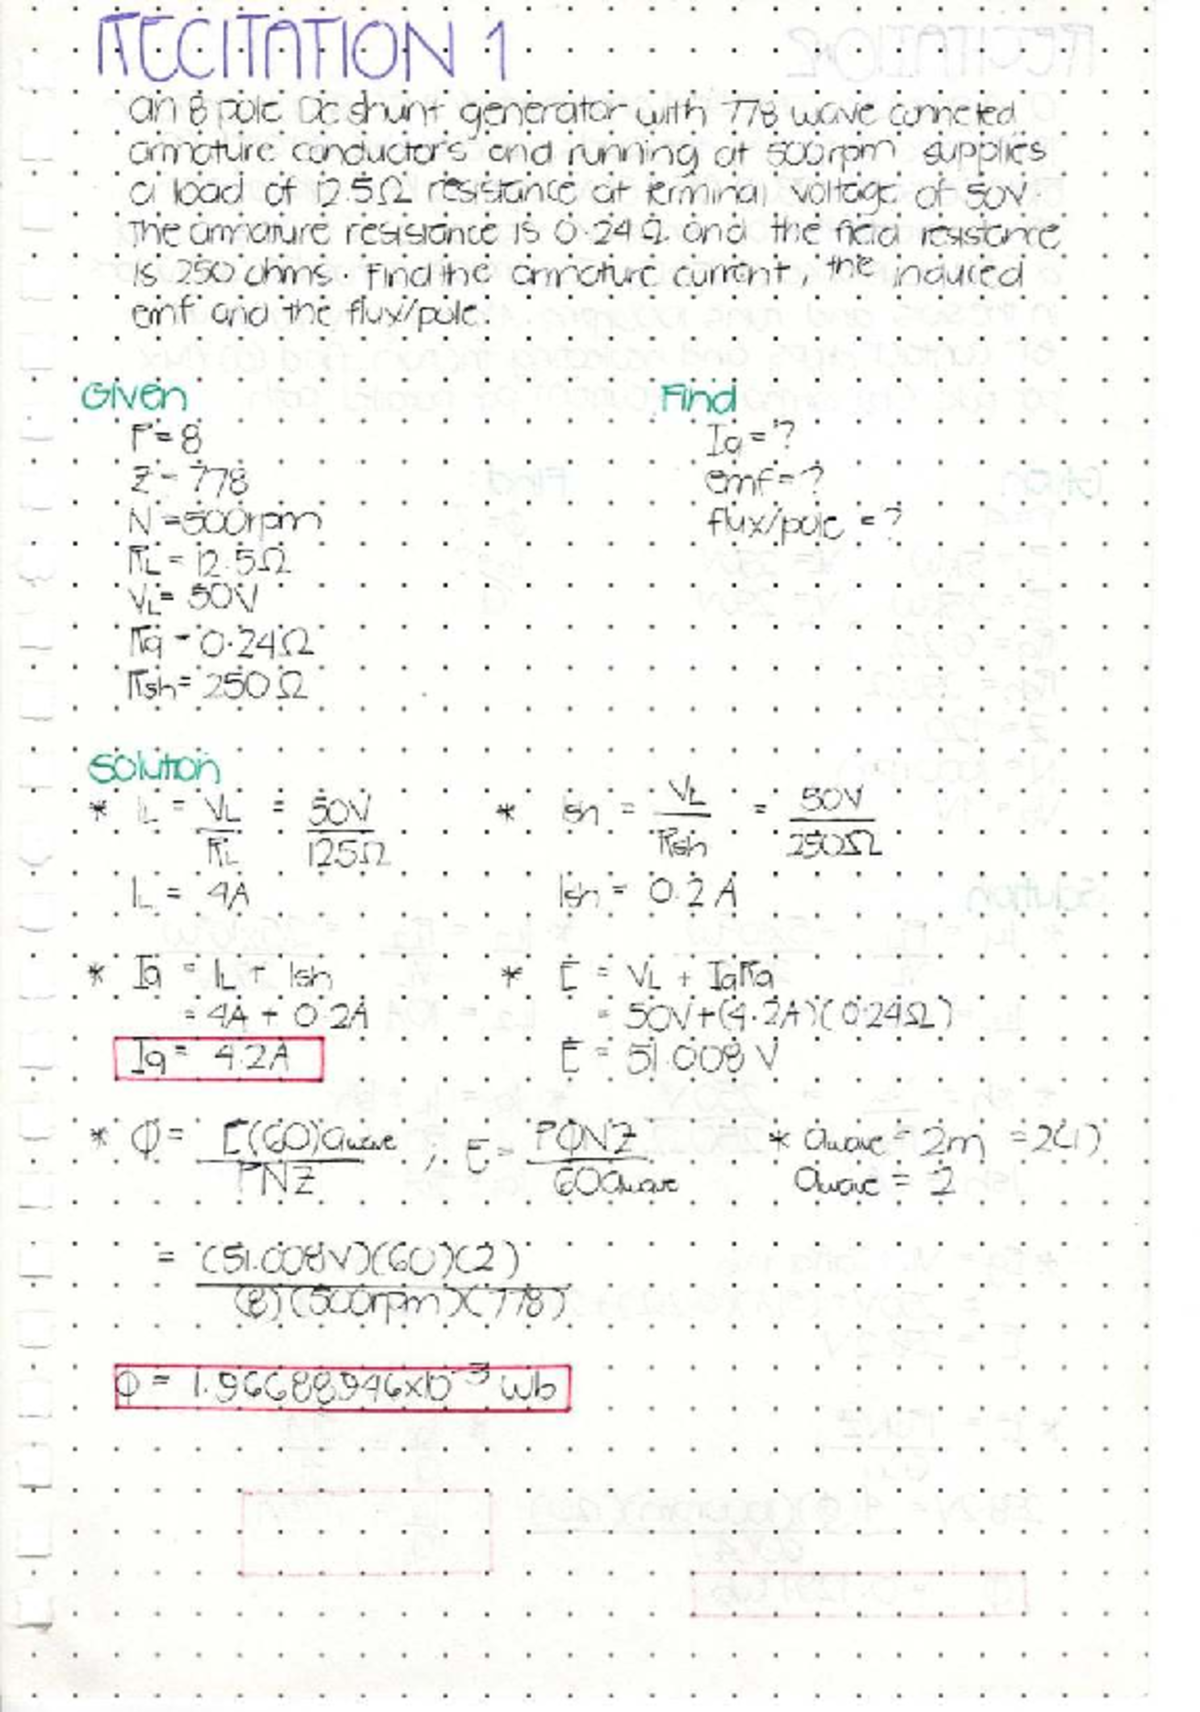 RECITATION 1
an 8 pole Dc shunt generator with 778 wave conneted
armature conductors and running at 500rpm supplies
a load of 12.5Ω resistance at terminal voltage of 50V.
The armature resistance is 0.24Ω and the field resistance
is 250 ohms. Find the armature current, the induced
emf and the flux/pole.
Given Find
P = 8 Ia = ?
Z = 778 emf = ?
N = 500rpm flux/pole = ?
RL = 12.5Ω
VL = 50V
Ra = 0.24Ω
Rsh = 250Ω
Solution
* IL = VL/RL = 50V/12.5Ω * Ish = VL/Rsh = 50V/250Ω
IL = 4A Ish = 0.2A
* Ia = IL + Ish * E = VL + IaRa
= 4A + 0.2A = 50V+(4.2A)(0.24Ω)
Ia = 4.2A E = 51.008V
* Φ = E(60)awave/PNZ ; E = PΦNZ/60awave * awave = 2m = 2(1)
awave = 2
= (51.008V)(60)(2)/(8)(500rpm)(778)
Φ = 1.96688946x10⁻³ wb